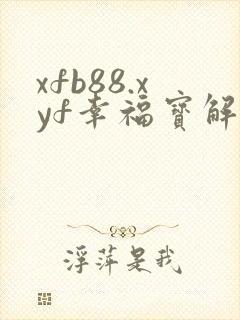 xfb88.x
yf幸福寳解
浮萍是我